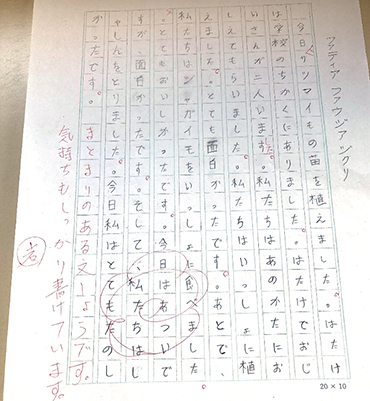 今日、サツマイもの苗を植えました。はたけ
は学校のちかくにありました。はたけでおじ
いさんが二人います。私たちはあのかたにお
しえてもらいました。私たちはいっしょに植
えました。とても面白かったです。あとで、
私たちはジャガイモをいっしょに食べました
。とてもおいしかったです。今日はあついで
すが、面白かったです。そして、私たちはし
ゃしんをとりました。今日私はとてもたのし
かったです。
まとまりのある文しょうです。
気持ちもしっかり書けています。
20×10